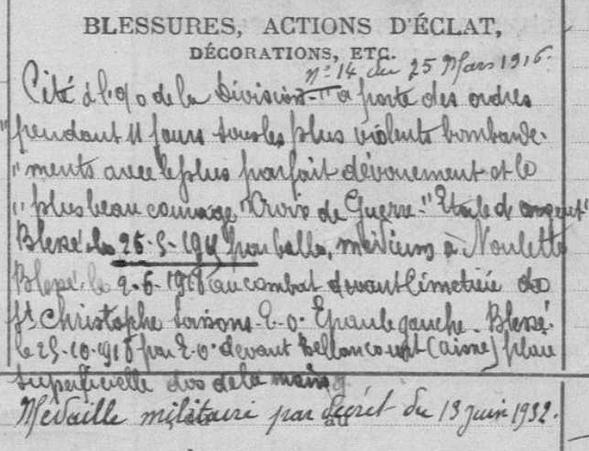 BLESSURES, ACTIONS D'ÉCLAT,
DÉCORATIONS, ETC.
n° 14 du 25 Mars 1916.
Cité à l'o de la Division "a porté des ordres
"pendant 11 jours sous les plus violents bombarde-
"ments avec le plus parfait dévouement et le
"plus beau courage" Croix de Guerre - "Etoile de argent"
Blessé le 26-5-191 par balle, à Noulette
Blessé le 2-6-1918 au combat devant cimetière de
St Christophe Soissons E.O. Epaule gauche. Blessé
le 25-10-1918 par E.O. devant (Aisne) plaie
superficielle dos de la main g
Médaille militaire par décret du 13 juin 1932.